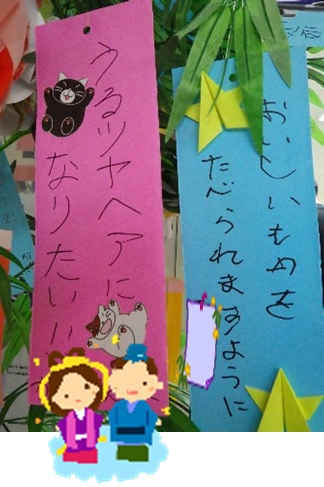 うるツヤヘアに
なりたい!!
おいしいものを
たべられますように